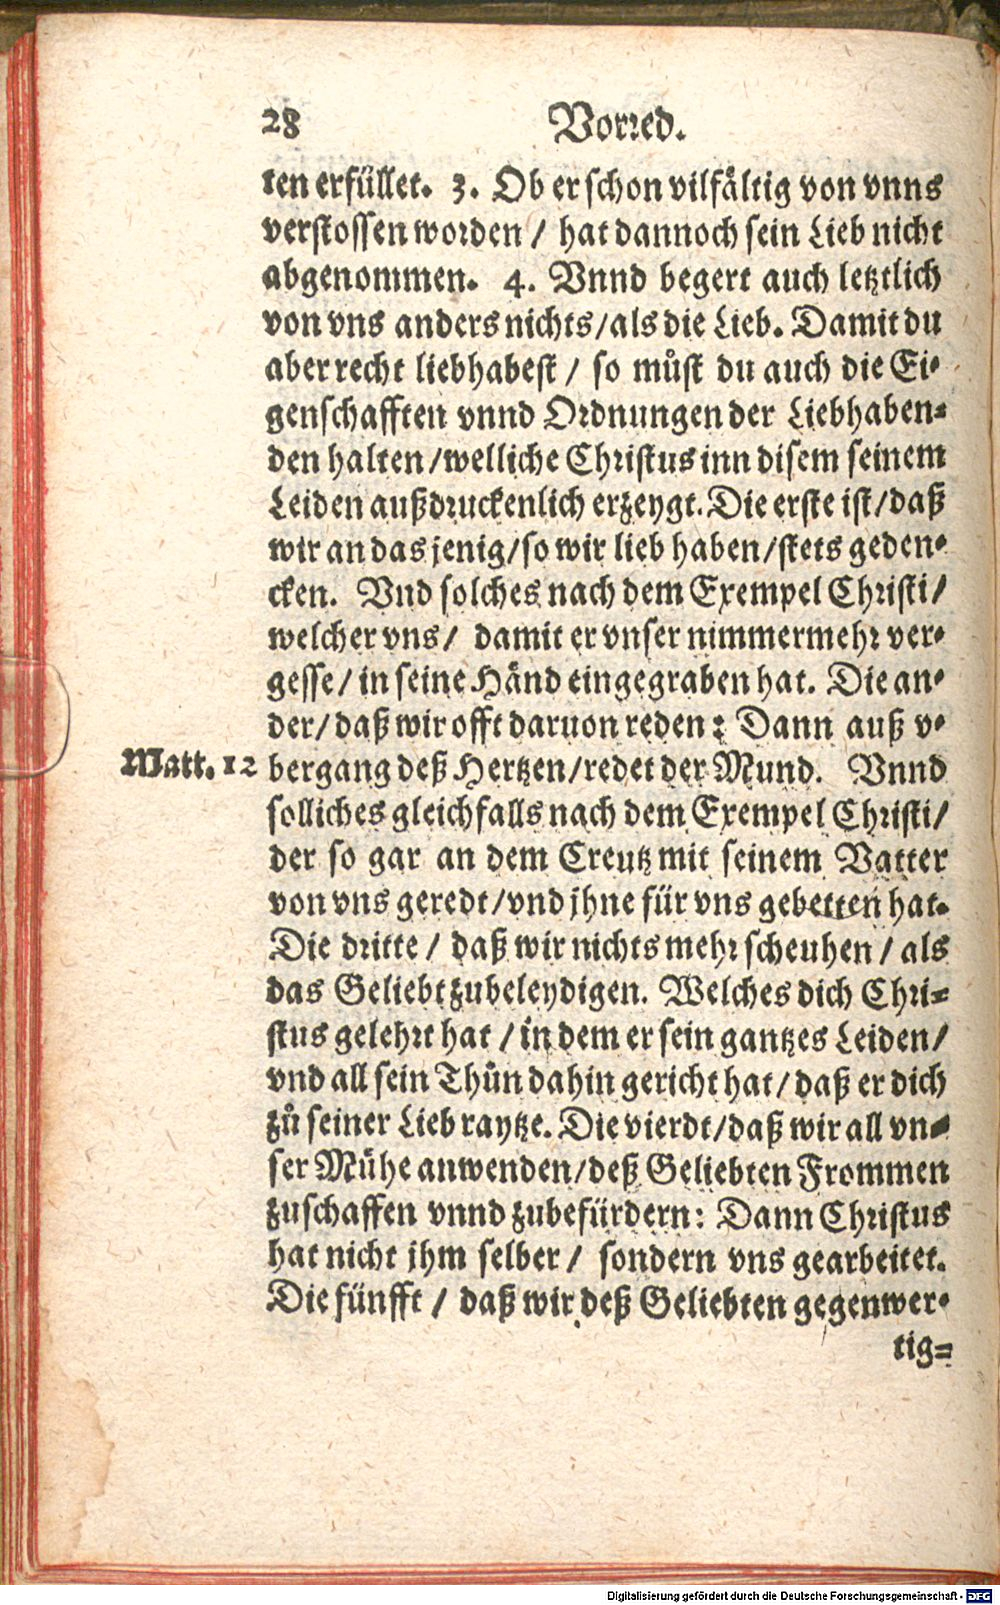 28 Vorred.
ten erfüllet. 3. Ob er schon vilfältig von vnns
verstossen worden / hat dannoch sein Lieb nicht
abgenommen. 4. Vnnd begert auch letztlich
von vns anders nichts/als die Lieb. Damit du
aber recht liebhabest / so můst du auch die Ei-
genschafften vnnd Ordnungen der Liebhaben-
den halten/welliche Christus inn disem seinem
Leiden außdruckenlich erzeygt. Die erste ist/daß
wir an das jenig/so wir lieb haben/stets geden-
cken. Vnd solches nach dem Exempel Christi/
welcher vns/ damit er vnser nimmermehr ver-
gesse/ in seine Händ eingegraben hat. Die an-
der/ daß wir offt daruon reden: Dann auß v-
Matt. 12 bergang deß Hertzen/redet der Mund. Vnnd
solliches gleichfalls nach dem Exempel Christi/
der so gar an dem Creutz mit seinem Vatter
von vns geredt/vnd jhne für vns gebetten hat.
Die dritte / daß wir nichts mehr scheuhen / als
das Geliebt zubeleydigen. Welches dich Chri-
stus gelehrt hat / in dem er sein gantzes Leiden/
vnd all sein Thůn dahin gericht hat/ daß er dich
zů seiner Lieb raytze. Die vierdt/daß wir all vn-
ser Mühe anwenden/deß Geliebten Frommen
zuschaffen vnnd zubefürdern: Dann Christus
hat nicht jhm selber / sondern vns gearbeitet.
Die fünfft / daß wir deß Geliebten gegenwer-
tig-
Digitalisierung gefördert durch die Deutsche Forschungsgemeinschaft - DFG